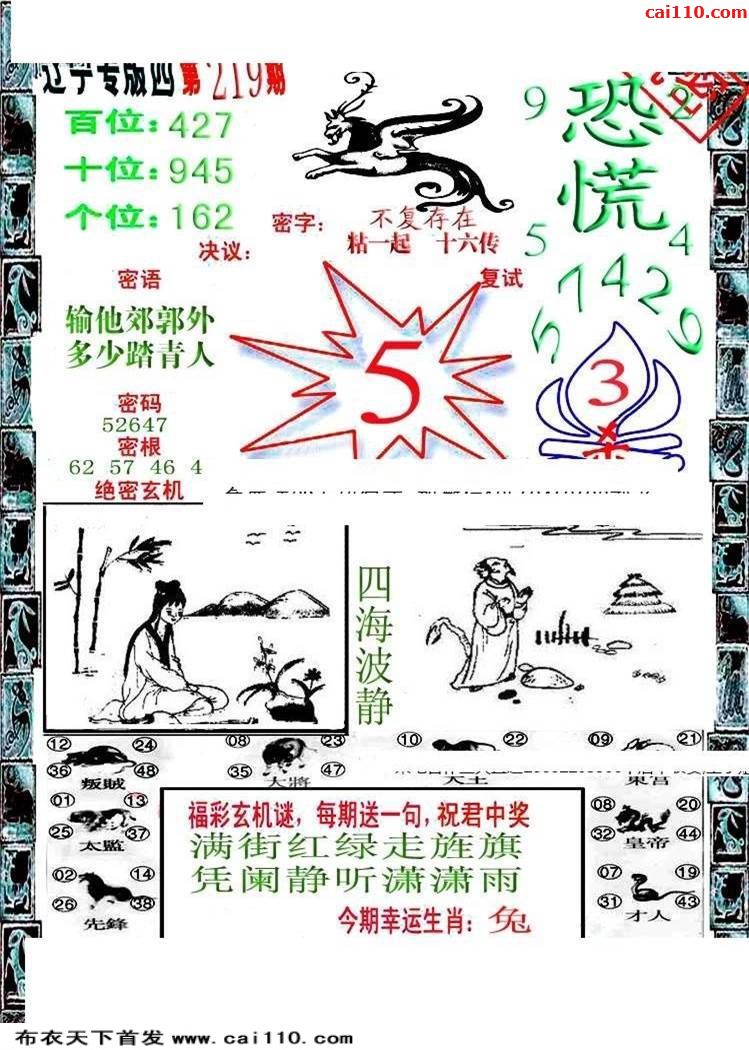 cai110.com
辽宁专版四 第219期
百位:427
十位:945
个位:162
9 恐慌 2
5 4
密字: 不复存在
决议: 粘一起 十六传
密语
复试
57429
输他郊郭外
多少踏青人
5
3
密码
52647
密根
62 57 46 4
绝密玄机
四海波静
12 24
36 48
叛贼
08 23
35 47
大將
10 22
天王
09 21
東宫
01 13
25 37
太监
02 14
26 38
先鋒
福彩玄机谜,每期送一句,祝君中奖
满街红绿走旌旗
凭阑静听潇潇雨
今期幸运生肖: 兔
08 20
32 44
皇帝
07 19
31 43
才人
布衣天下首发 www.cai110.com